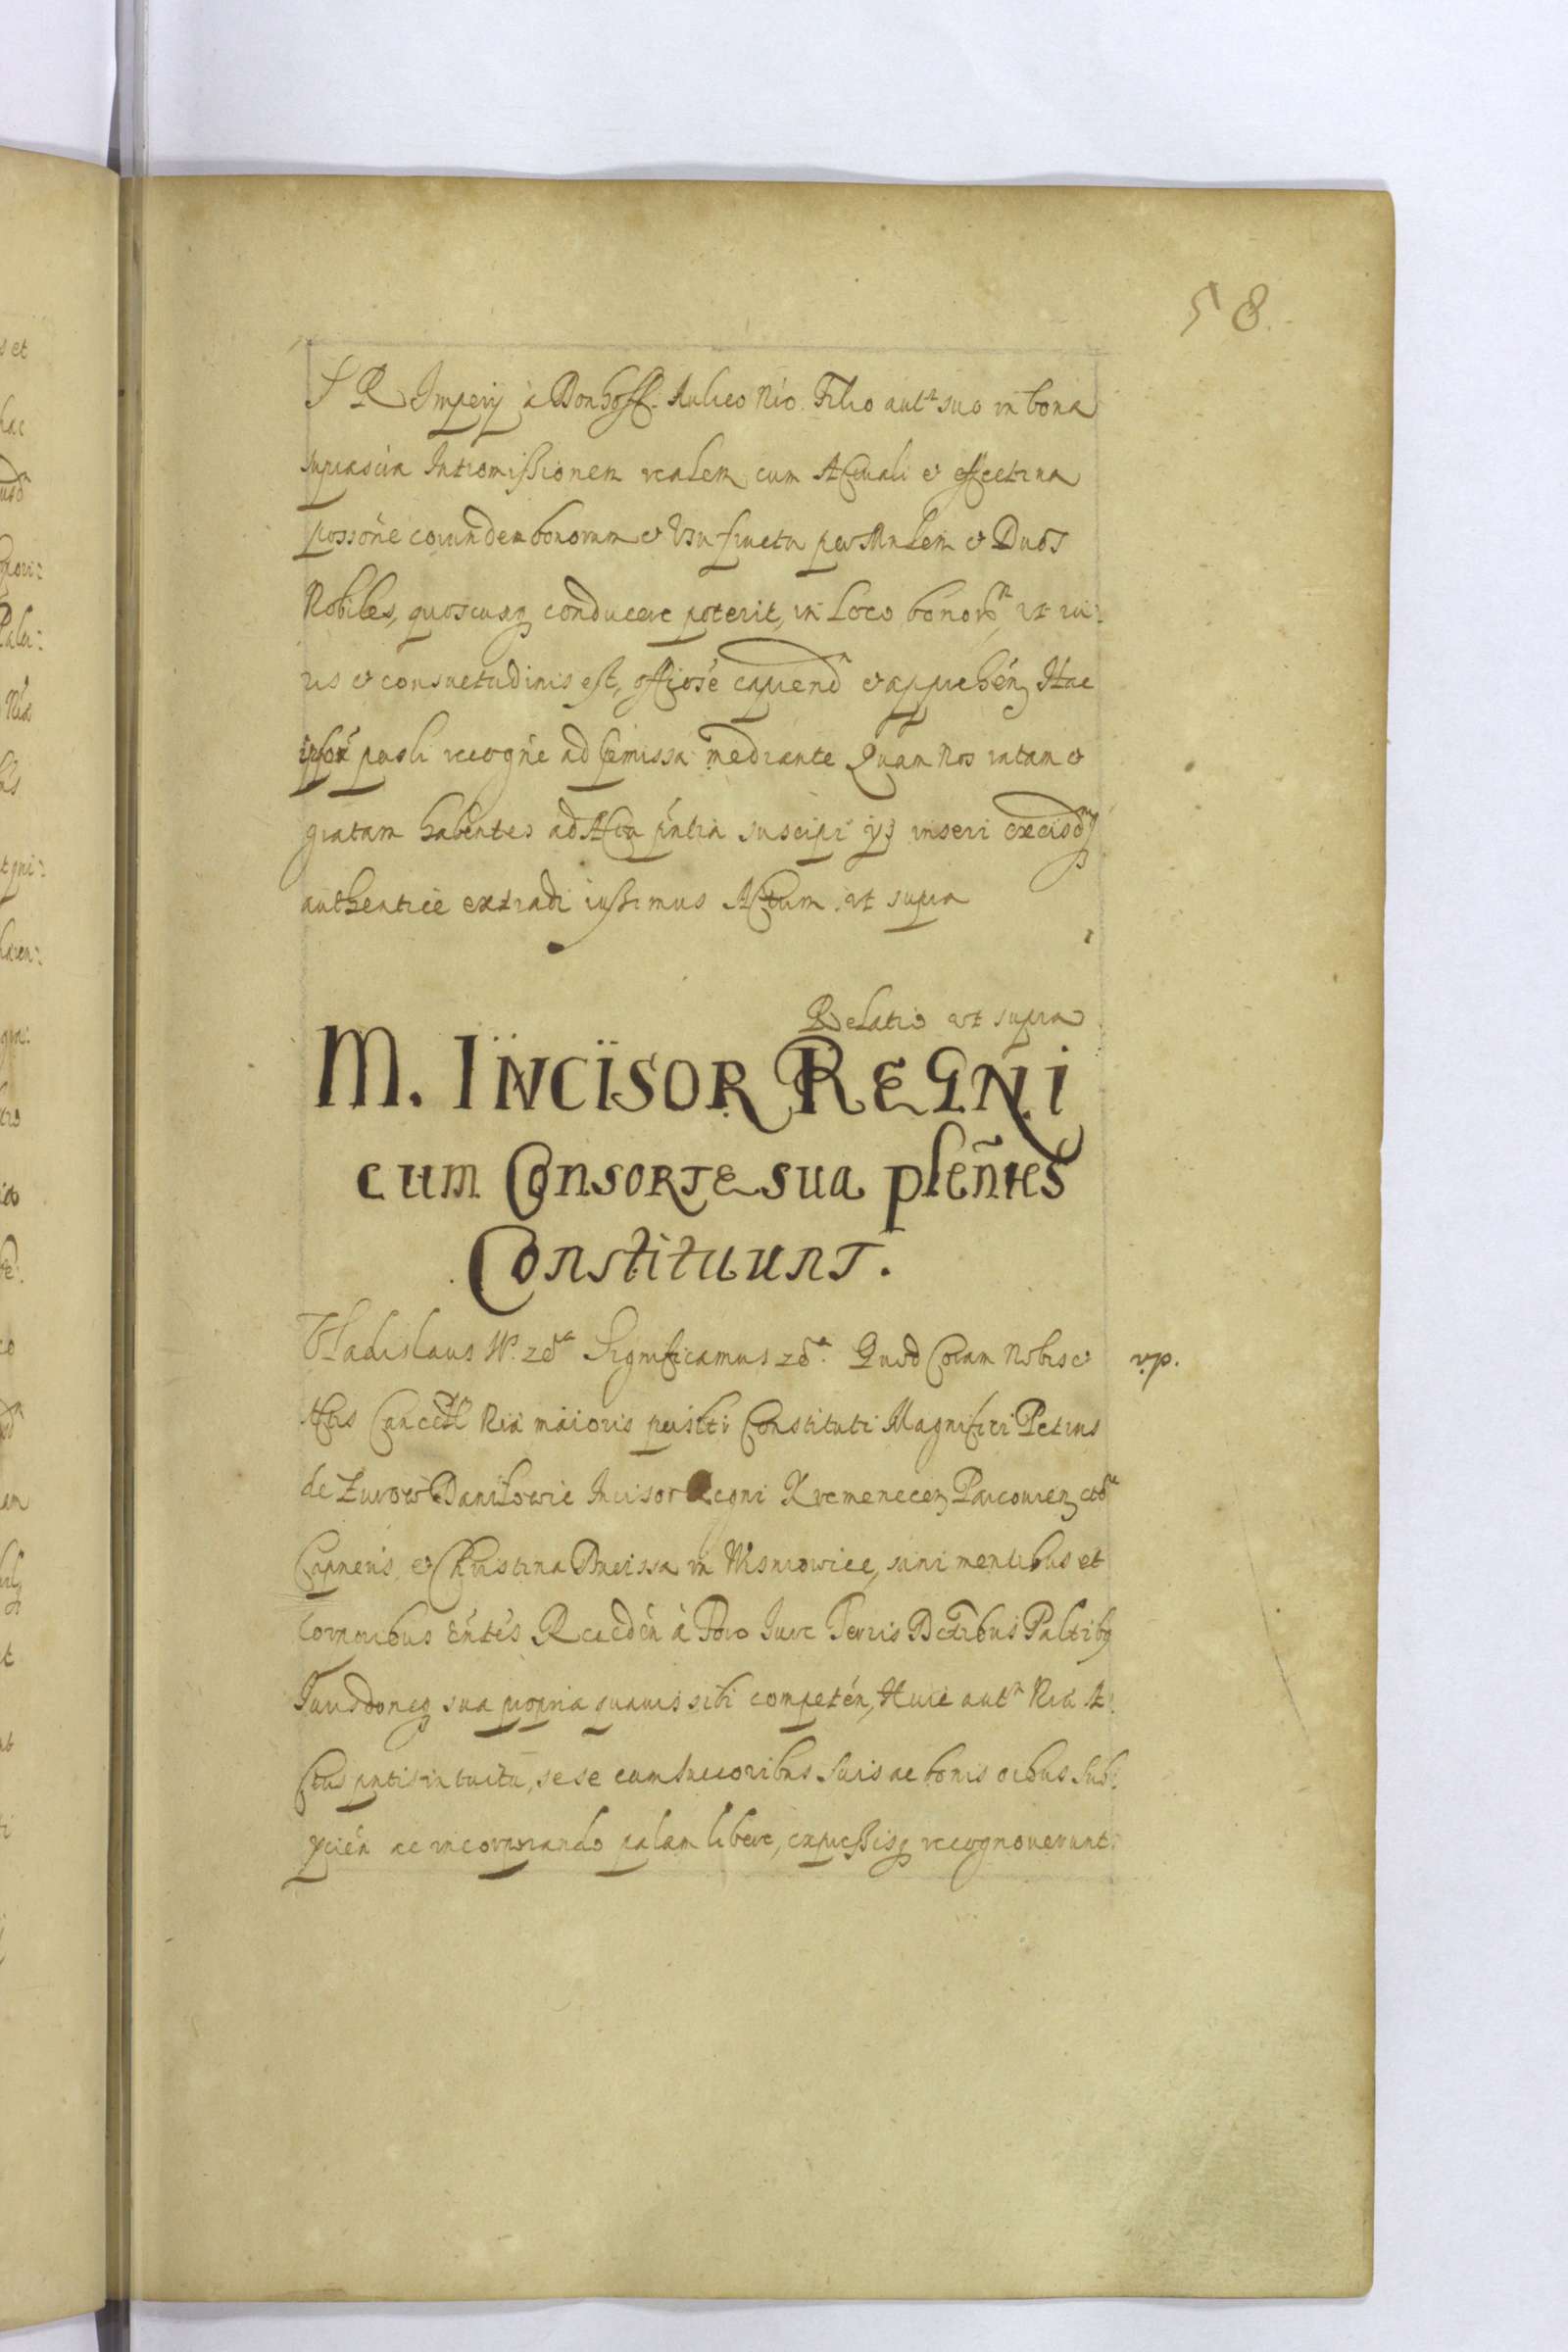 58.
S R Imperij à Donhoff. Aulico Nro. Filio autem suo in bona
suprascta Intromissionem realem cum Actuali et effectiva
possone eorundem bonorum et Usufructu per Mnlem et Duos
Nobiles, quoscunq conducere poterit, in Loco bonorm, ut iu:
ris et consuetudinis est, officiose capiend et apprehen, Hac
ipsor psoli recogne ad permissa mediante Quam Nos ratam et
gratam habentes ad Acta pntia suscipi ijs inseri exeisdmq
authentice extradi iussimus Actum ut supra
Relatio ut supra
M. INCISOR REGNI
cum Consorte sua pleñtes
Constituunt.
Vladislaus IV. etc. Significamus etc. Quod Coram Nobis et
vip.
Actis Cancell Nrà maioris psblr Constituti Magnifici Petrus
de Zurow Daniłowic Incisor Regni Kremenecen Parcovien etc
Capneus, et Christina Ducissa in Wisniowiec, sani mentibus et
corporibus éntes Recedén à Foro Jure Terris Dctribus Paltibq
Jurisdoneq sua propria quavis sibi competén, Huic autm Nrà A:
ctus pntis intuitu, sese cum succoribus suis ac bonis oibus Sub:
ycién ac incorporando palam libere, expressisq recognoverunt.